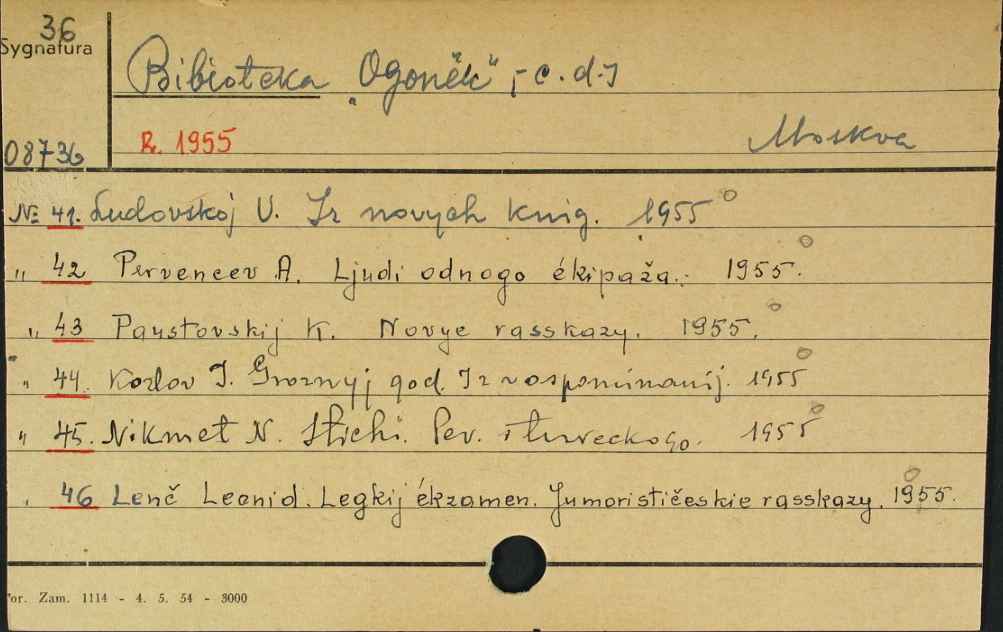 36
Sygnatura
Bibioteka "Ogoněk", c. d. I
08736
R. 1955
Moskva
№ 41. Ludovskoj U. Iz novych knig. 1955
" 42 Pervencev A. Ljudi odnogo ékipaža. 1955.
" 43 Paustovskij K. Novye rasskazy. 1955.
" 44. Kozlov I. Groznyj god. Iz vospominanij. 1955
" 45. Nikmet N. Stichi. Per. s tureckogo. 1955
" 46 Lenč Leonid. Legkij ékzamen. Jumorističeskie rasskazy. 1955.
or. Zam. 1114 - 4. 5. 54 - 3000